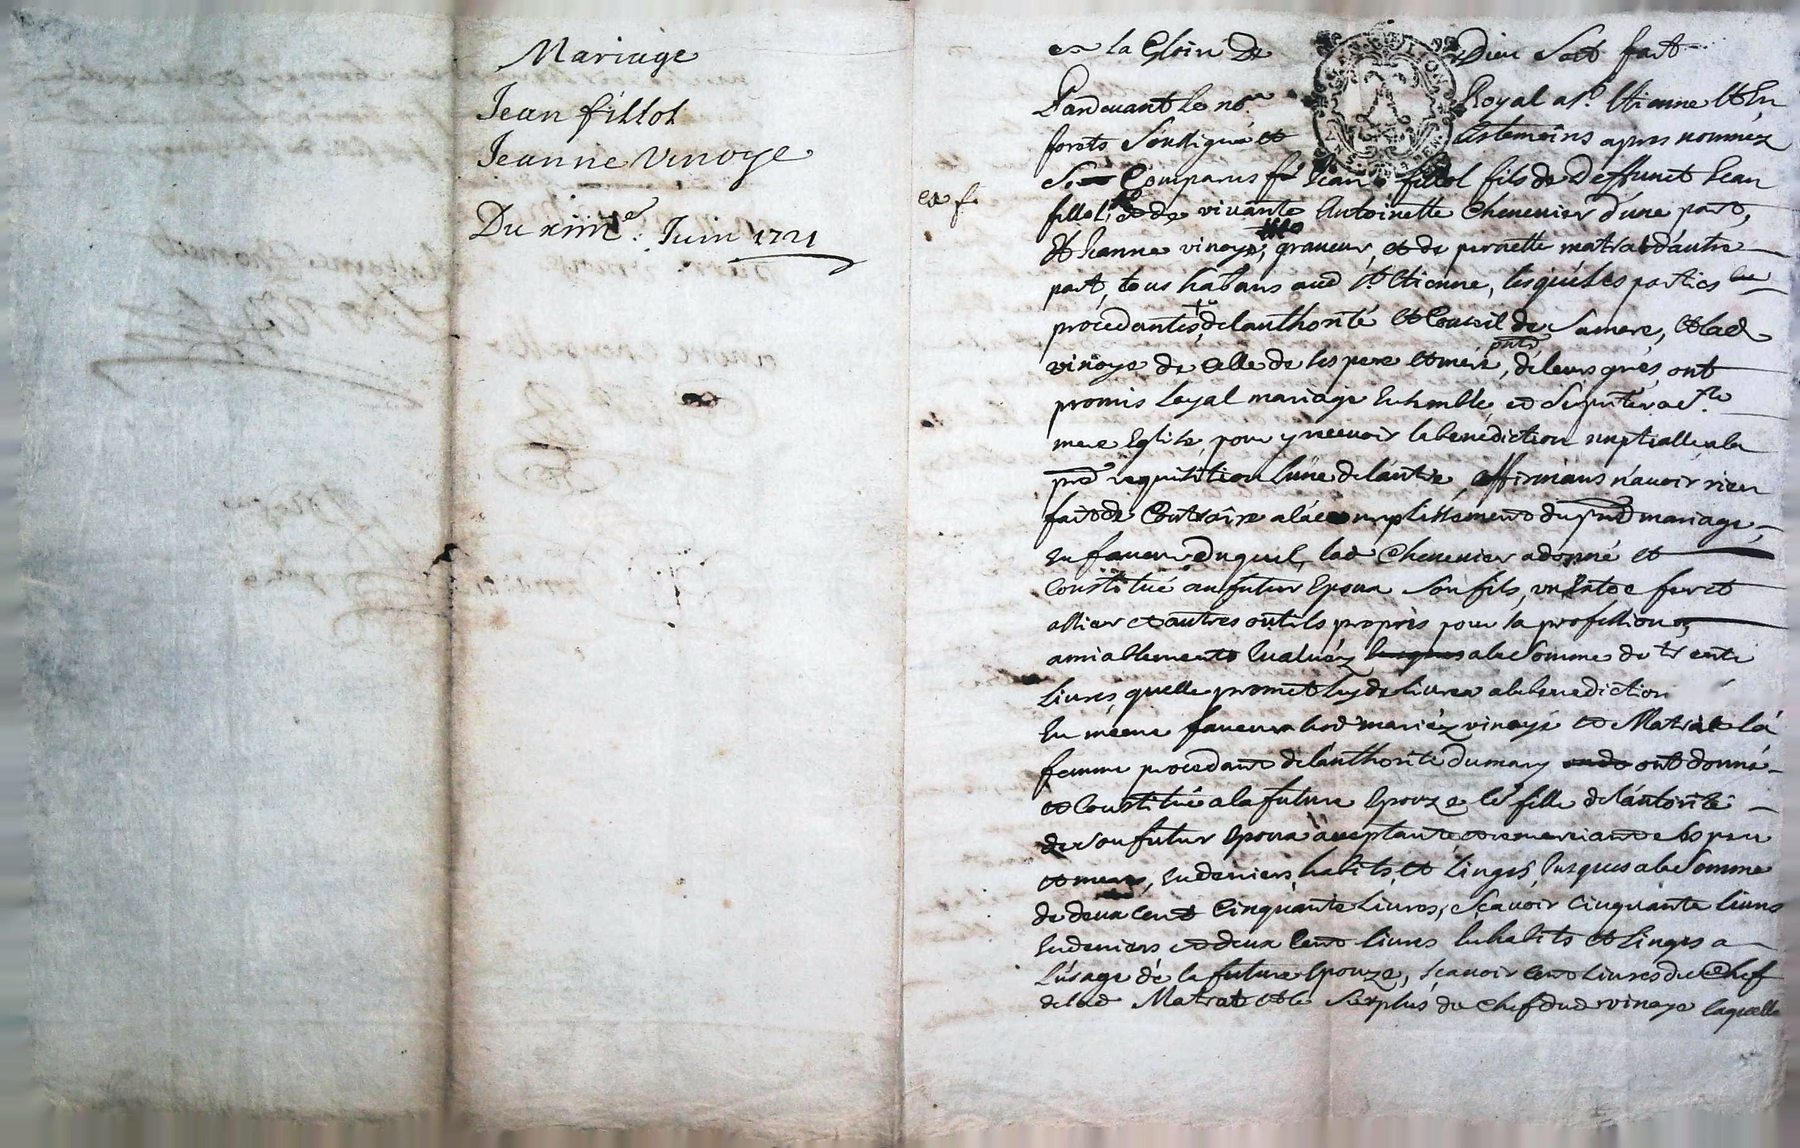 Mariage
Jean fillol
Jeanne Vinoye
Du xiiii.e Juin 1721
ex f.
a la Gloire De Dieu Soit fait
Pardevant le no.re Royal a S.t Etienne Et En
forets Soussigné et Les temoins apres nommez
Se Comparus Jean fillol fils de Deffunct Jean
fillol, et de vivante Antoinette Chenevier d'une part,
Et Jeanne vinoye, graveur, et de pernette matrat d'autre
part, tous habans aud St Etienne, lesquelles parties
procedantes, de lauthorité et Conseil de Sa mere, et lad
vinoye de celle de ses pere et mere, de leurs grés, ont
promis Loyal mariage Ensemble, et Se pnter a S.te
mere Eglise, pour y recevoir la benediction nuptialle, a la
pre requisition Lune de lautre, affirmans n'avoir rien
fait de Contraire a laccomplissement du pnt mariage,
En faveur Duquel, lad Chenevier a donné et
Constitué au futur Epoux Son fils, un
et autres outils propres pour sa profession,
amiablement Evalués a la Somme de trente
Livres, quelle promet luy delivrer a la benediction
En meme faveur lesd mariez vinoye et Matrat la
femme procedant de lauthorité du mary ont donné
et Constitué a la future Epouze leur fille de lautorité
de Son futur Epoux acceptante et remerciant ses pere
et mere, En deniers, habits, et Linges, Jusques a la Somme
de deux cent Cinquante Livres, Sçavoir Cinquante livres
En deniers et deux Cent livres En habits et linges a
L'usage de la future Epouze, Sçavoir Cent Livres du Chef
de lad Matrat et le Surplus du Chef dud vinoye laquelle